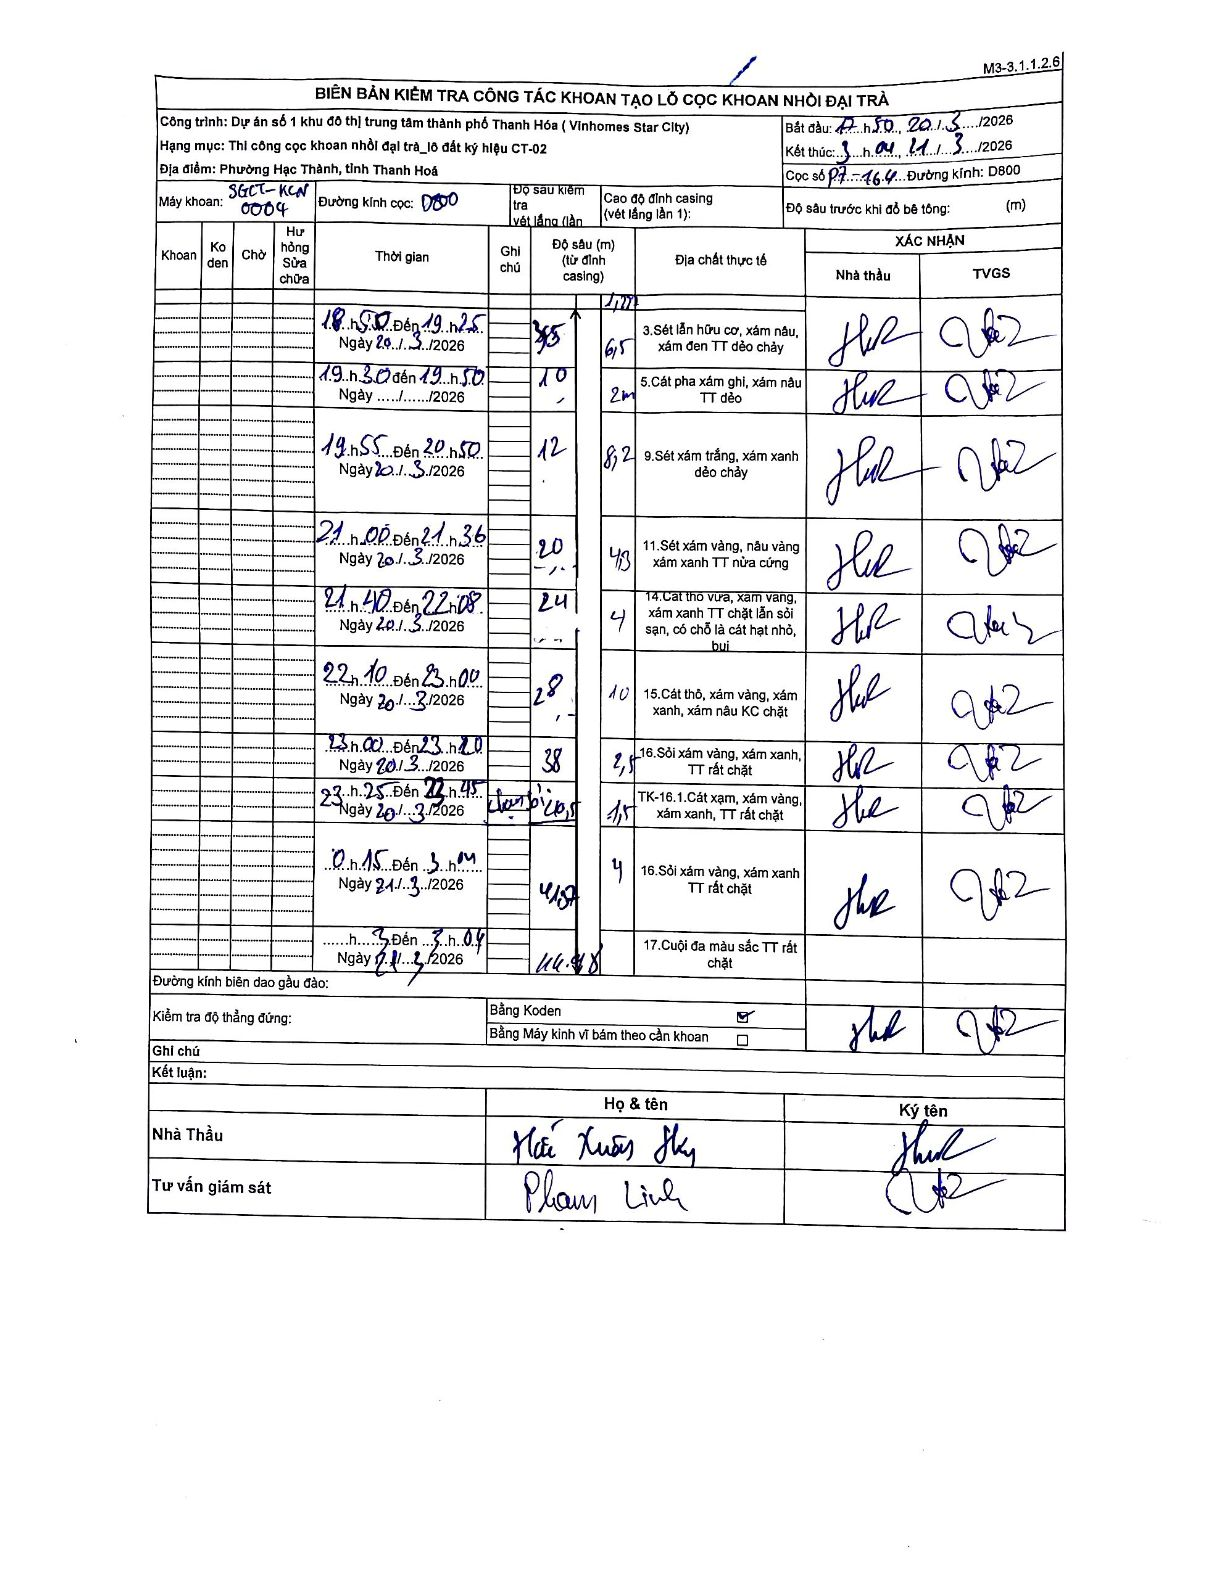 M3-3.1.1.2.6
BIÊN BẢN KIỂM TRA CÔNG TÁC KHOAN TẠO LỖ CỌC KHOAN NHỒI ĐẠI TRÀ
Công trình: Dự án số 1 khu đô thị trung tâm thành phố Thanh Hóa ( Vinhomes Star City)
Hạng mục: Thi công cọc khoan nhồi đại trà_lô đất ký hiệu CT-02
Địa điểm: Phường Hạc Thành, tỉnh Thanh Hoá
Bắt đầu: 17.h50., 20./.3..../2026
Kết thúc: 3..h.04, 21./.3..../2026
Cọc số P7-164...Đường kính: D800
Máy khoan: SGCT-KCN 0004
Đường kính cọc: D800
Độ sâu kiểm tra
vét lắng (lần
Cao độ đỉnh casing
(vét lắng lần 1):
Độ sâu trước khi đổ bê tông: (m)
Khoan
Ko den
Chờ
Hư hỏng Sửa chữa
Thời gian
Ghi chú
Độ sâu (m) (từ đỉnh casing)
Địa chất thực tế
XÁC NHẬN
Nhà thầu
TVGS
18..h50.Đến 19..h.25.
Ngày 20../.3../2026
6,5
3.Sét lẫn hữu cơ, xám nâu, xám đen TT dẻo chảy
19..h30 đến 19..h50
Ngày ...../....../2026
10
2m
5.Cát pha xám ghi, xám nâu TT dẻo
19.h55..Đến 20.h50.
Ngày 20./..3./2026
12
8,2
9.Sét xám trắng, xám xanh dẻo chảy
21..h.00.Đến 21..h.36
Ngày 20./..3./2026
20
4,3
11.Sét xám vàng, nâu vàng xám xanh TT nửa cứng
21.h.40.Đến 22h08.
Ngày 20./..3./2026
24
4
14.Cát thô vừa, xám vàng, xám xanh TT chặt lẫn sỏi sạn, có chỗ là cát hạt nhỏ, bụi
22.h.10..Đến 23.h00
Ngày 20./...3./2026
28
10
15.Cát thô, xám vàng, xám xanh, xám nâu KC chặt
23.h.00..Đến 23..h.20
Ngày 20/.3.../2026
38
2,5
16.Sỏi xám vàng, xám xanh, TT rất chặt
23..h.25.Đến 23.h.45
Ngày 20/..3./2026
40,5
1,5
TK-16.1.Cát xạm, xám vàng, xám xanh, TT rất chặt
..0.h.15..Đến ..3.h
Ngày 21./..3../2026
4
16.Sỏi xám vàng, xám xanh TT rất chặt
......h....3.Đến ...3.h..04
Ngày 21/...3/2026
17.Cuội đa màu sắc TT rất chặt
Đường kính biên dao gầu đào:
Kiểm tra độ thẳng đứng:
Bằng Koden
Bằng Máy kinh vĩ bám theo cần khoan
Ghi chú
Kết luận:
Họ & tên
Ký tên
Nhà Thầu
Tư vấn giám sát
Phạm Linh